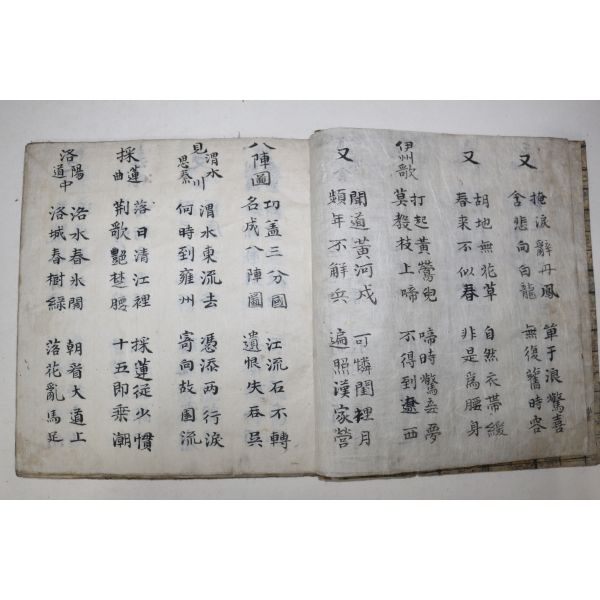 又
掩淚辭丹鳳
含悲向白龍
單于浪驚喜
無復舊時容
又
胡地無花草
春来不似春
自然衣帶緩
非是爲腰身
伊州歌
打起黃鶯兒
莫敎枝上啼
啼時驚妾夢
不得到西
又
聞道黃河戍
頻年不解兵
可憐閨裡月
遍照漢家營
八陣圖
功盖三分國
名成八陣圖
江流石不轉
遺恨失吞吳
見渭水思秦川
渭水東流去
何時到雍州
憑添两行淚
寄向故園流
採蓮曲
落日清江裡
荆歌艶楚腰
採蓮從少慣
十五即乘潮
洛陽道中
洛水春氷開
洛城春樹綠
朝看大道上
落花亂馬足